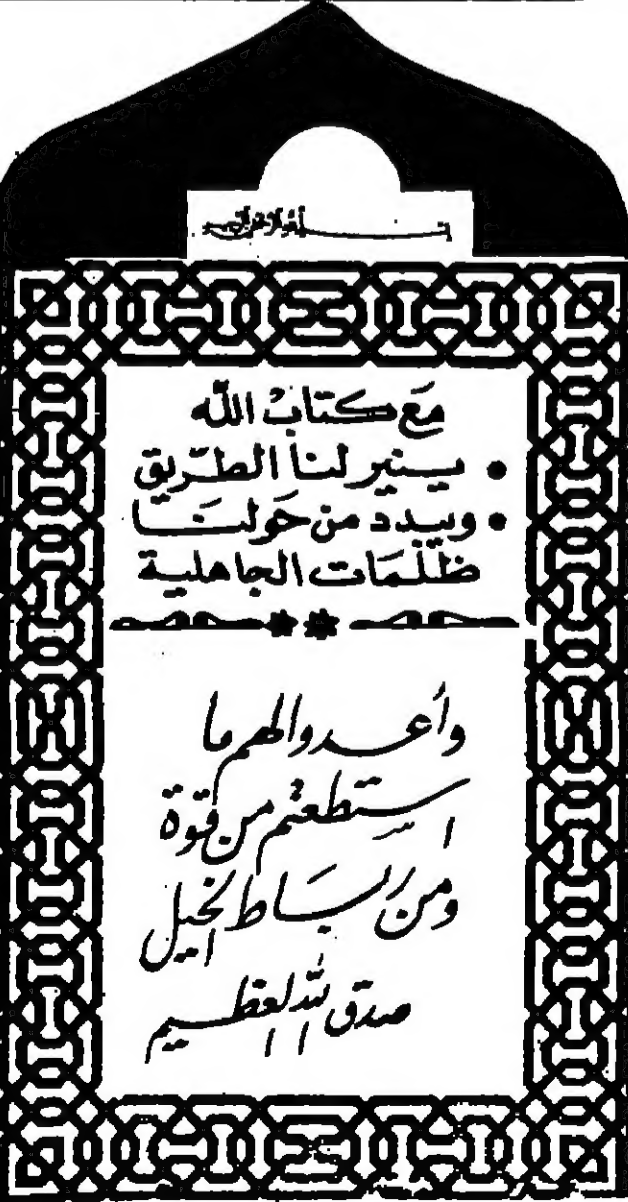 مع كتاب الله
• ينير لنا الطريق
• ويبدد من حولنا
ظلمات الجاهلية
وأعدوا لهم ما
استطعتم من قوة
ومن رباط الخيل
صدق الله العظيم